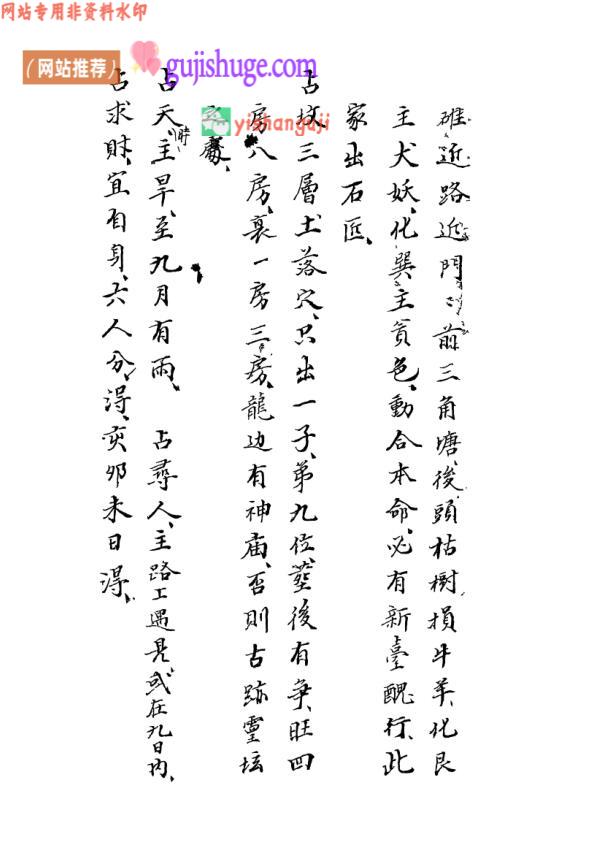 网站专用非资料水印
（网站推荐） gujishuge.com
yishanguji
碓近路近門門前三角塘後頭枯樹損牛羊化艮
主犬妖化巽主貪色動合本命必有新臺醜行此
家出石匠
占墳三層土落穴只出一子第九位塟後有爭旺四
房八房裏一房三房龍边有神庙否則古跡靈坛
占天時主旱至九月有雨 占尋人主路上遇見或在九日內
占求財宜自身六人分得亥卯未日得